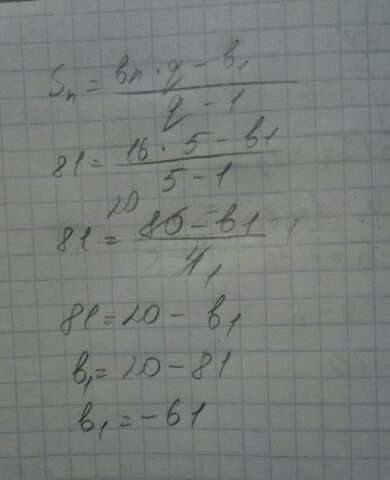 Sn = (bn · q - b1) / (q - 1)
81 = (16 · 5 - b1) / (5 - 1)
81 = (20 80 - b1) / 4 1
81 = 20 - b1
b1 = 20 - 81
b1 = -61